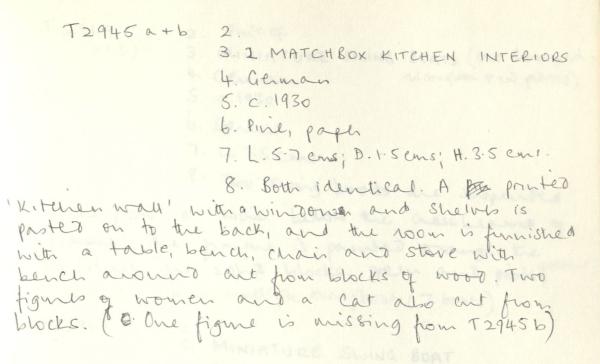 T2945 a+b 2.
3. 2 MATCHBOX KITCHEN INTERIORS
4. German
5. c. 1930
6. Pine, paper
7. L. 5.7 cms; D. 1.5 cms; H. 3.5 cms.
8. Both identical. A printed
'kitchen wall' with a window and shelves is
pasted on to the back, and the room is furnished
with a table, bench, chair and stove with
bench around cut from blocks of wood. Two
figures of women and a cat also cut from
blocks. (One figure is missing from T2945b)
MINIATURE SWING BOAT